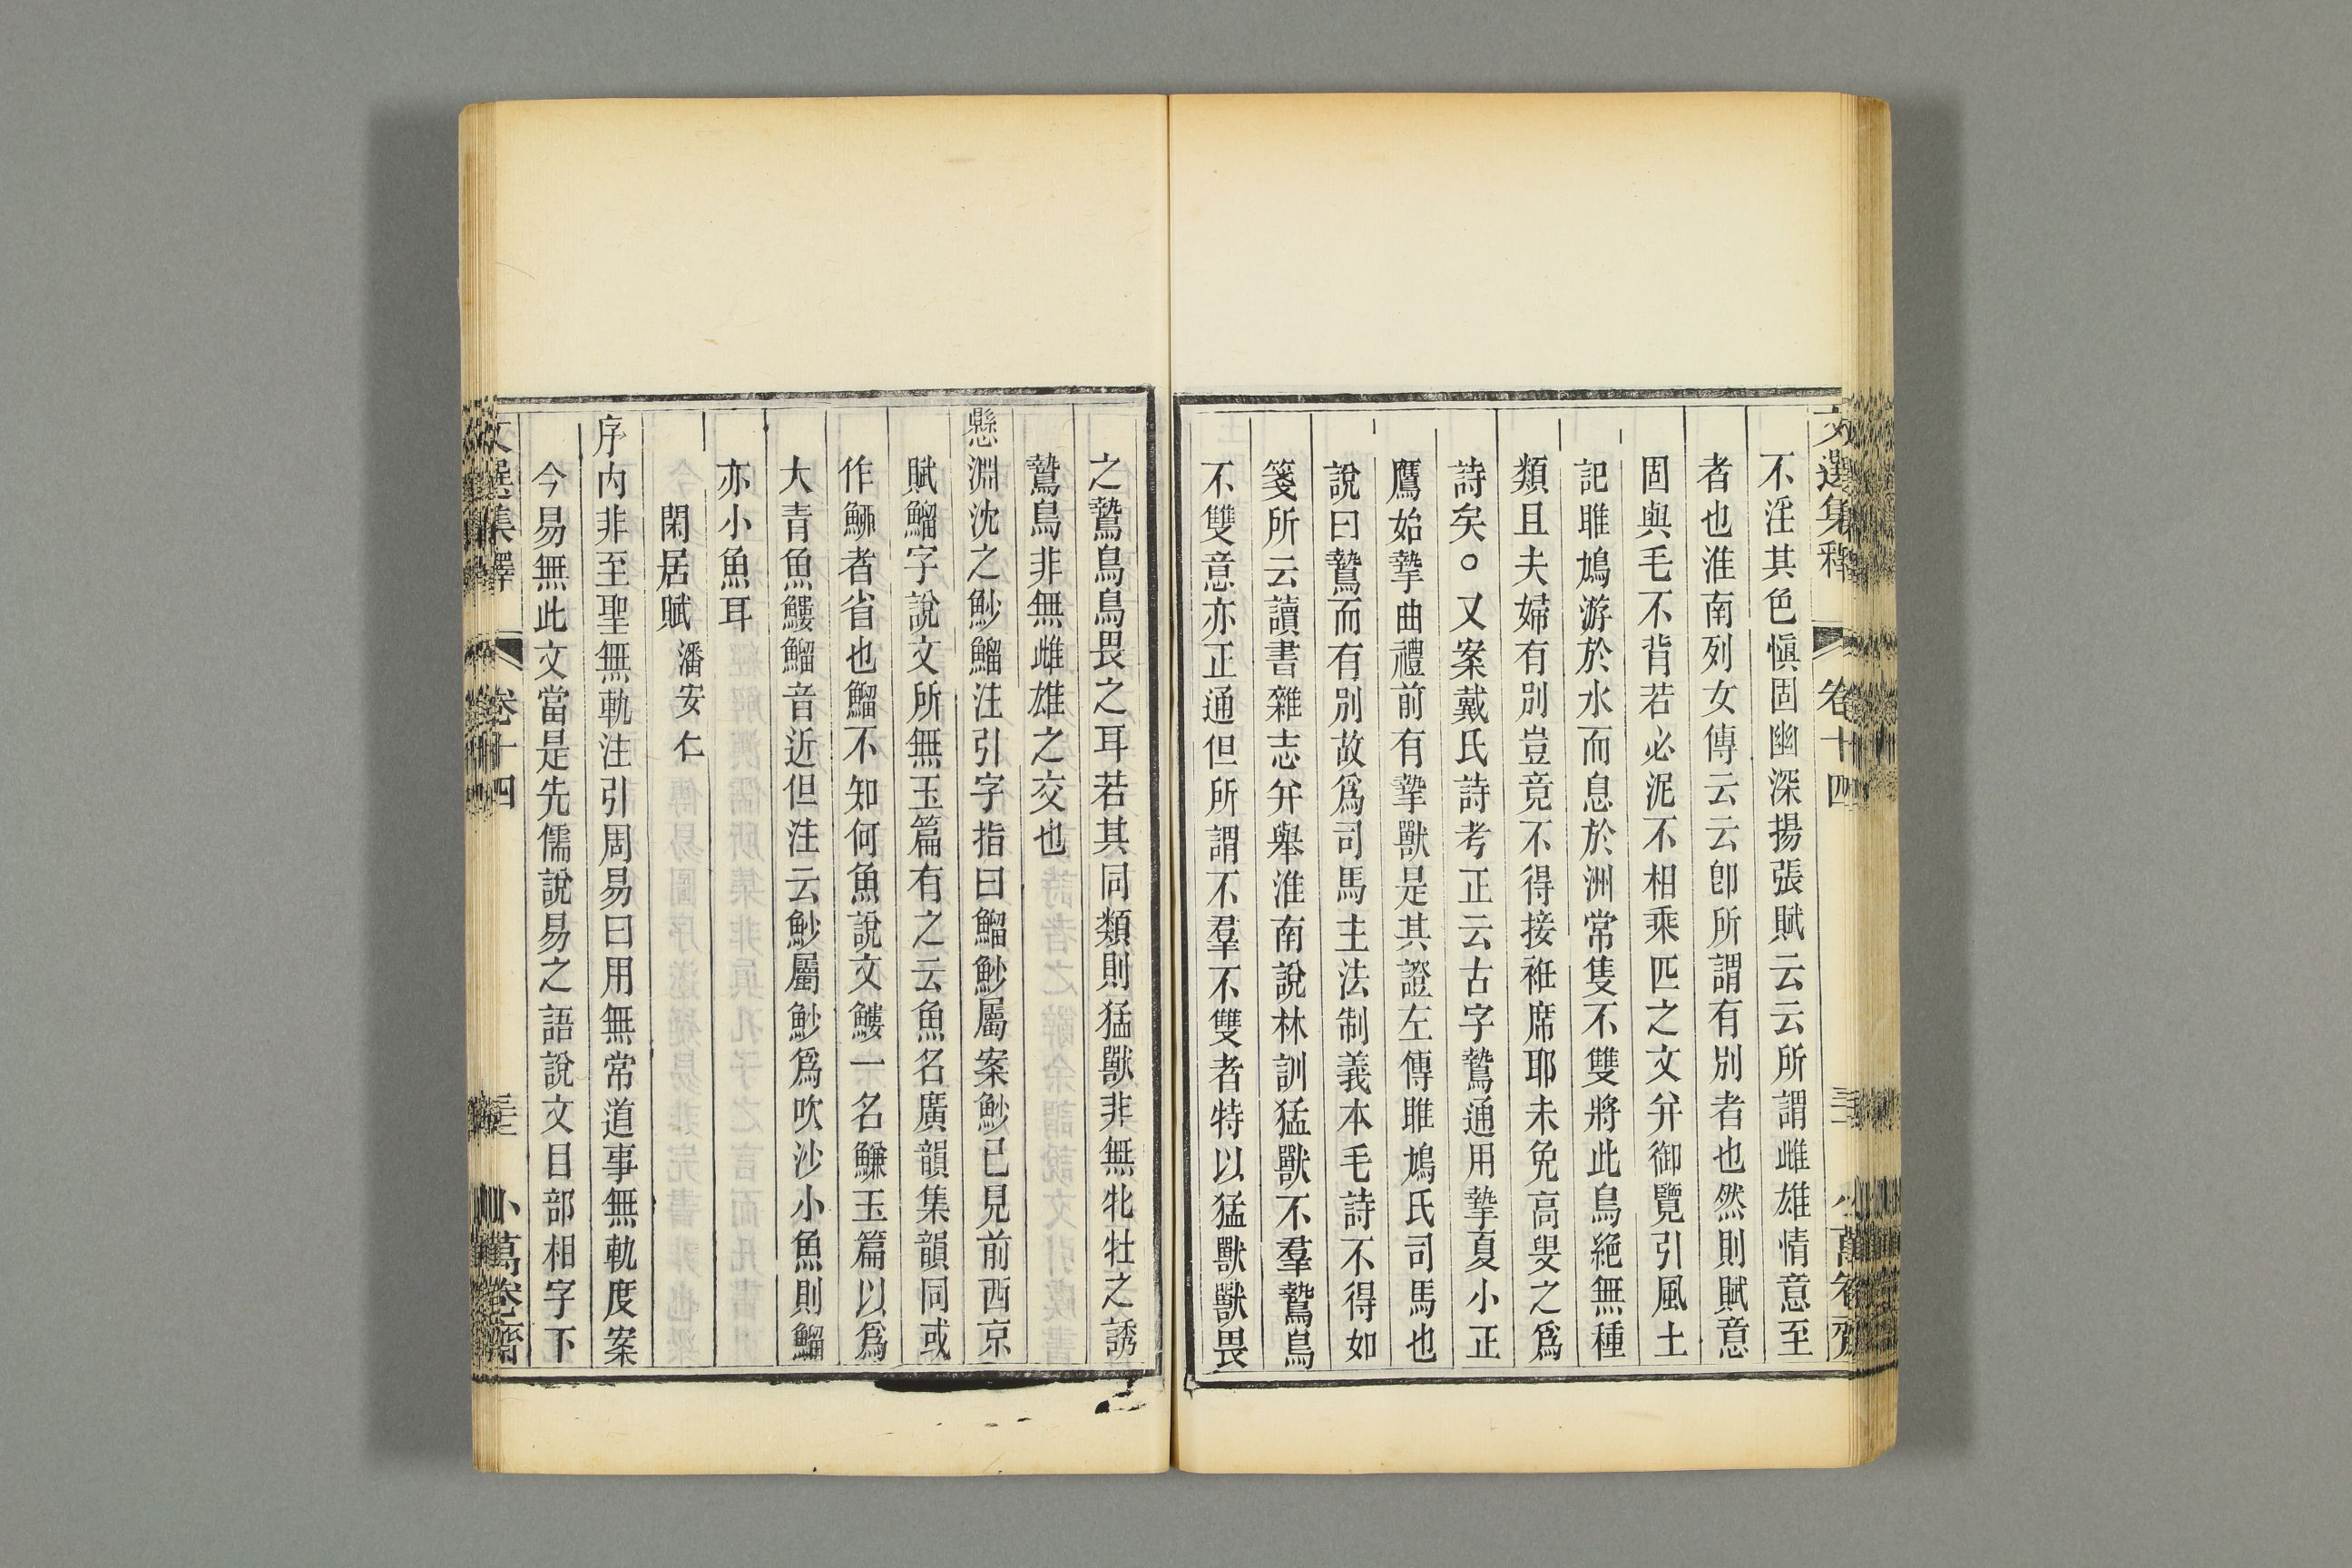 文選集釋 卷十四 小萬卷齋
不淫其色愼固幽深揚張賦云云所謂雌雄情意至
者也淮南列女傳云云卽所謂有別者也然則賦意
固與毛不背若必泥不相乘匹之文幷御覽引風土
記雎鳩游於水而息於洲常隻不雙將此鳥絶無種
類且夫婦有別豈竟不得接袵席耶未免高叟之爲
詩矣○又案戴氏詩考正云古字鷙通用摯夏小正
鷹始摯曲禮前有摯獸是其證左傳雎鳩氏司馬也
說曰鷙而有別故爲司馬主法制義本毛詩不得如
箋所云讀書雜志幷舉淮南說林訓猛獸不羣鷙鳥
不雙意亦正通但所謂不羣不雙者特以猛獸獸畏
之鷙鳥鳥畏之耳若其同類則猛獸非無牝牡之誘
鷙鳥非無雌雄之交也
懸淵沈之魦鰡注引字指曰鰡魦屬案魦已見前西京
賦鰡字說文所無玉篇有之云魚名廣韻集韻同或
作鰤者省也鰡不知何魚說文鰻一名鰜玉篇以爲
大青魚鰻鰡音近但注云魦屬魦爲吹沙小魚則鰡
亦小魚耳
閑居賦 潘安仁
序內非至聖無軌注引周易曰用無常道事無軌度案
今易無此文當是先儒說易之語說文目部相字下
文選集釋 卷十四 小萬卷齋